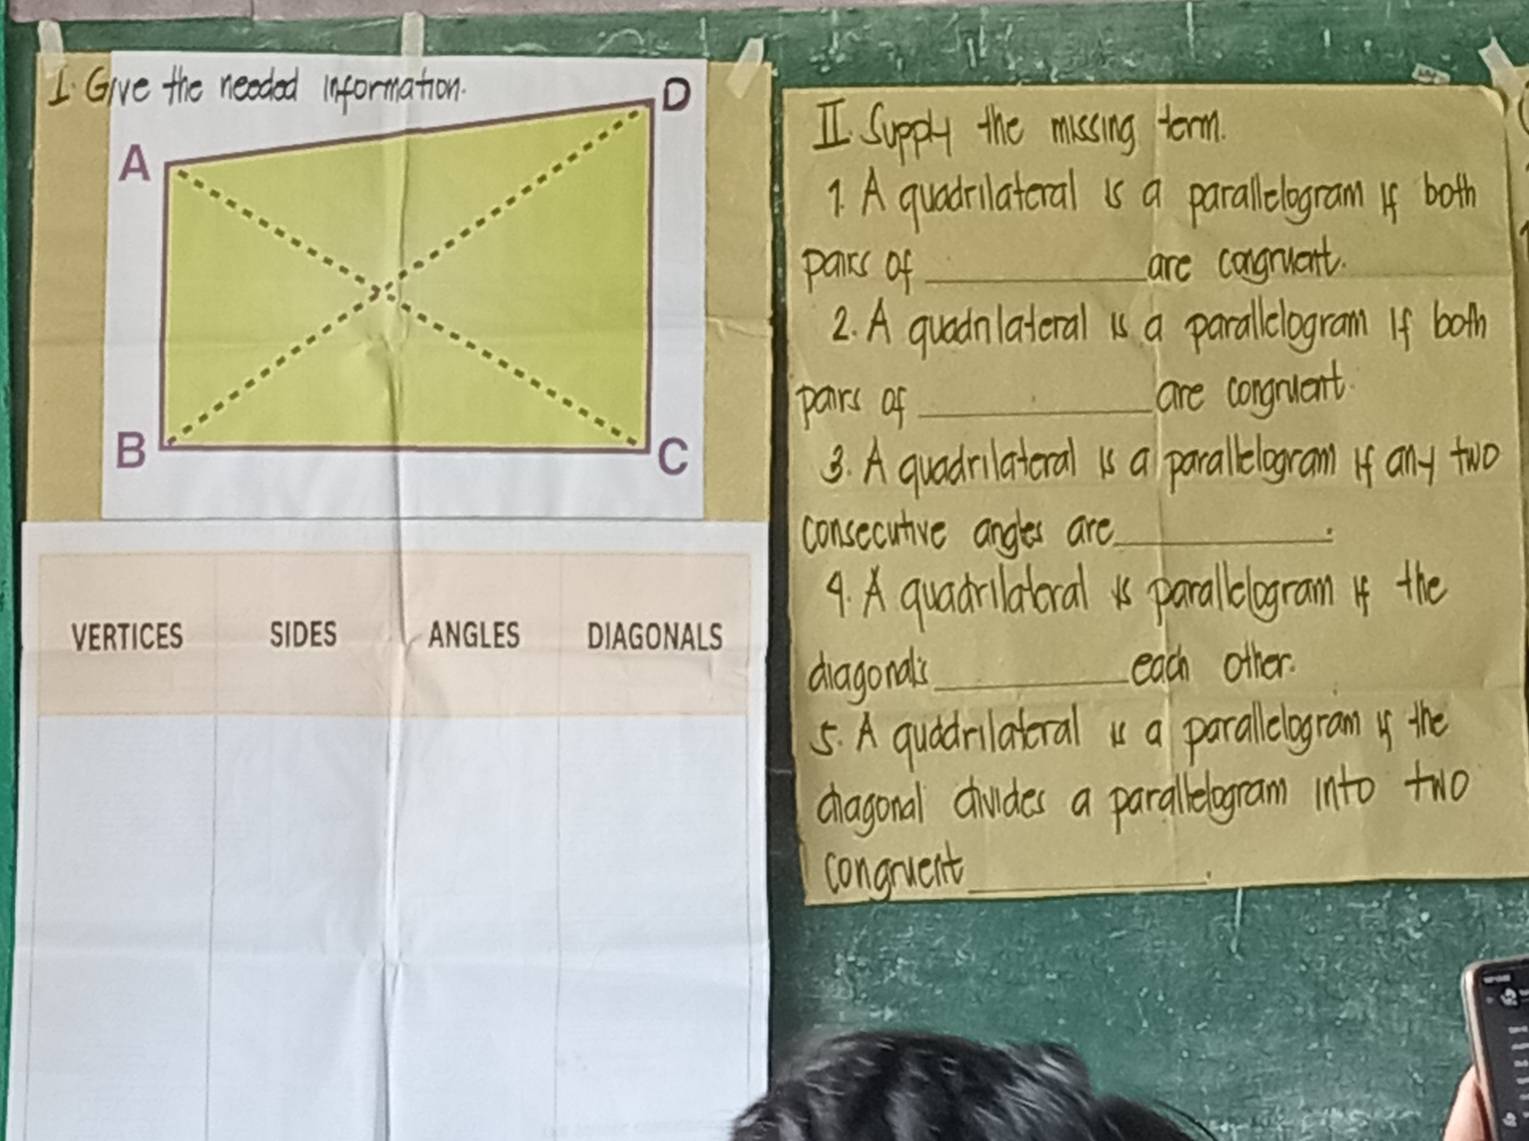 I. Give the needed information.
D
A
B
C
VERTICES SIDES ANGLES DIAGONALS
II. Supply the missing term.
1. A quadrilateral is a parallelogram if both
pairs of __________ are congruent.
2. A quadrilateral is a parallelogram if both
pairs of __________ are congruent.
3. A quadrilateral is a parallelogram if any two
consecutive angles are __________.
4. A quadrilateral is parallelogram if the
diagonals __________ each other.
5. A quadrilateral is a parallelogram if the
diagonal divides a parallelogram into two
congruent __________.